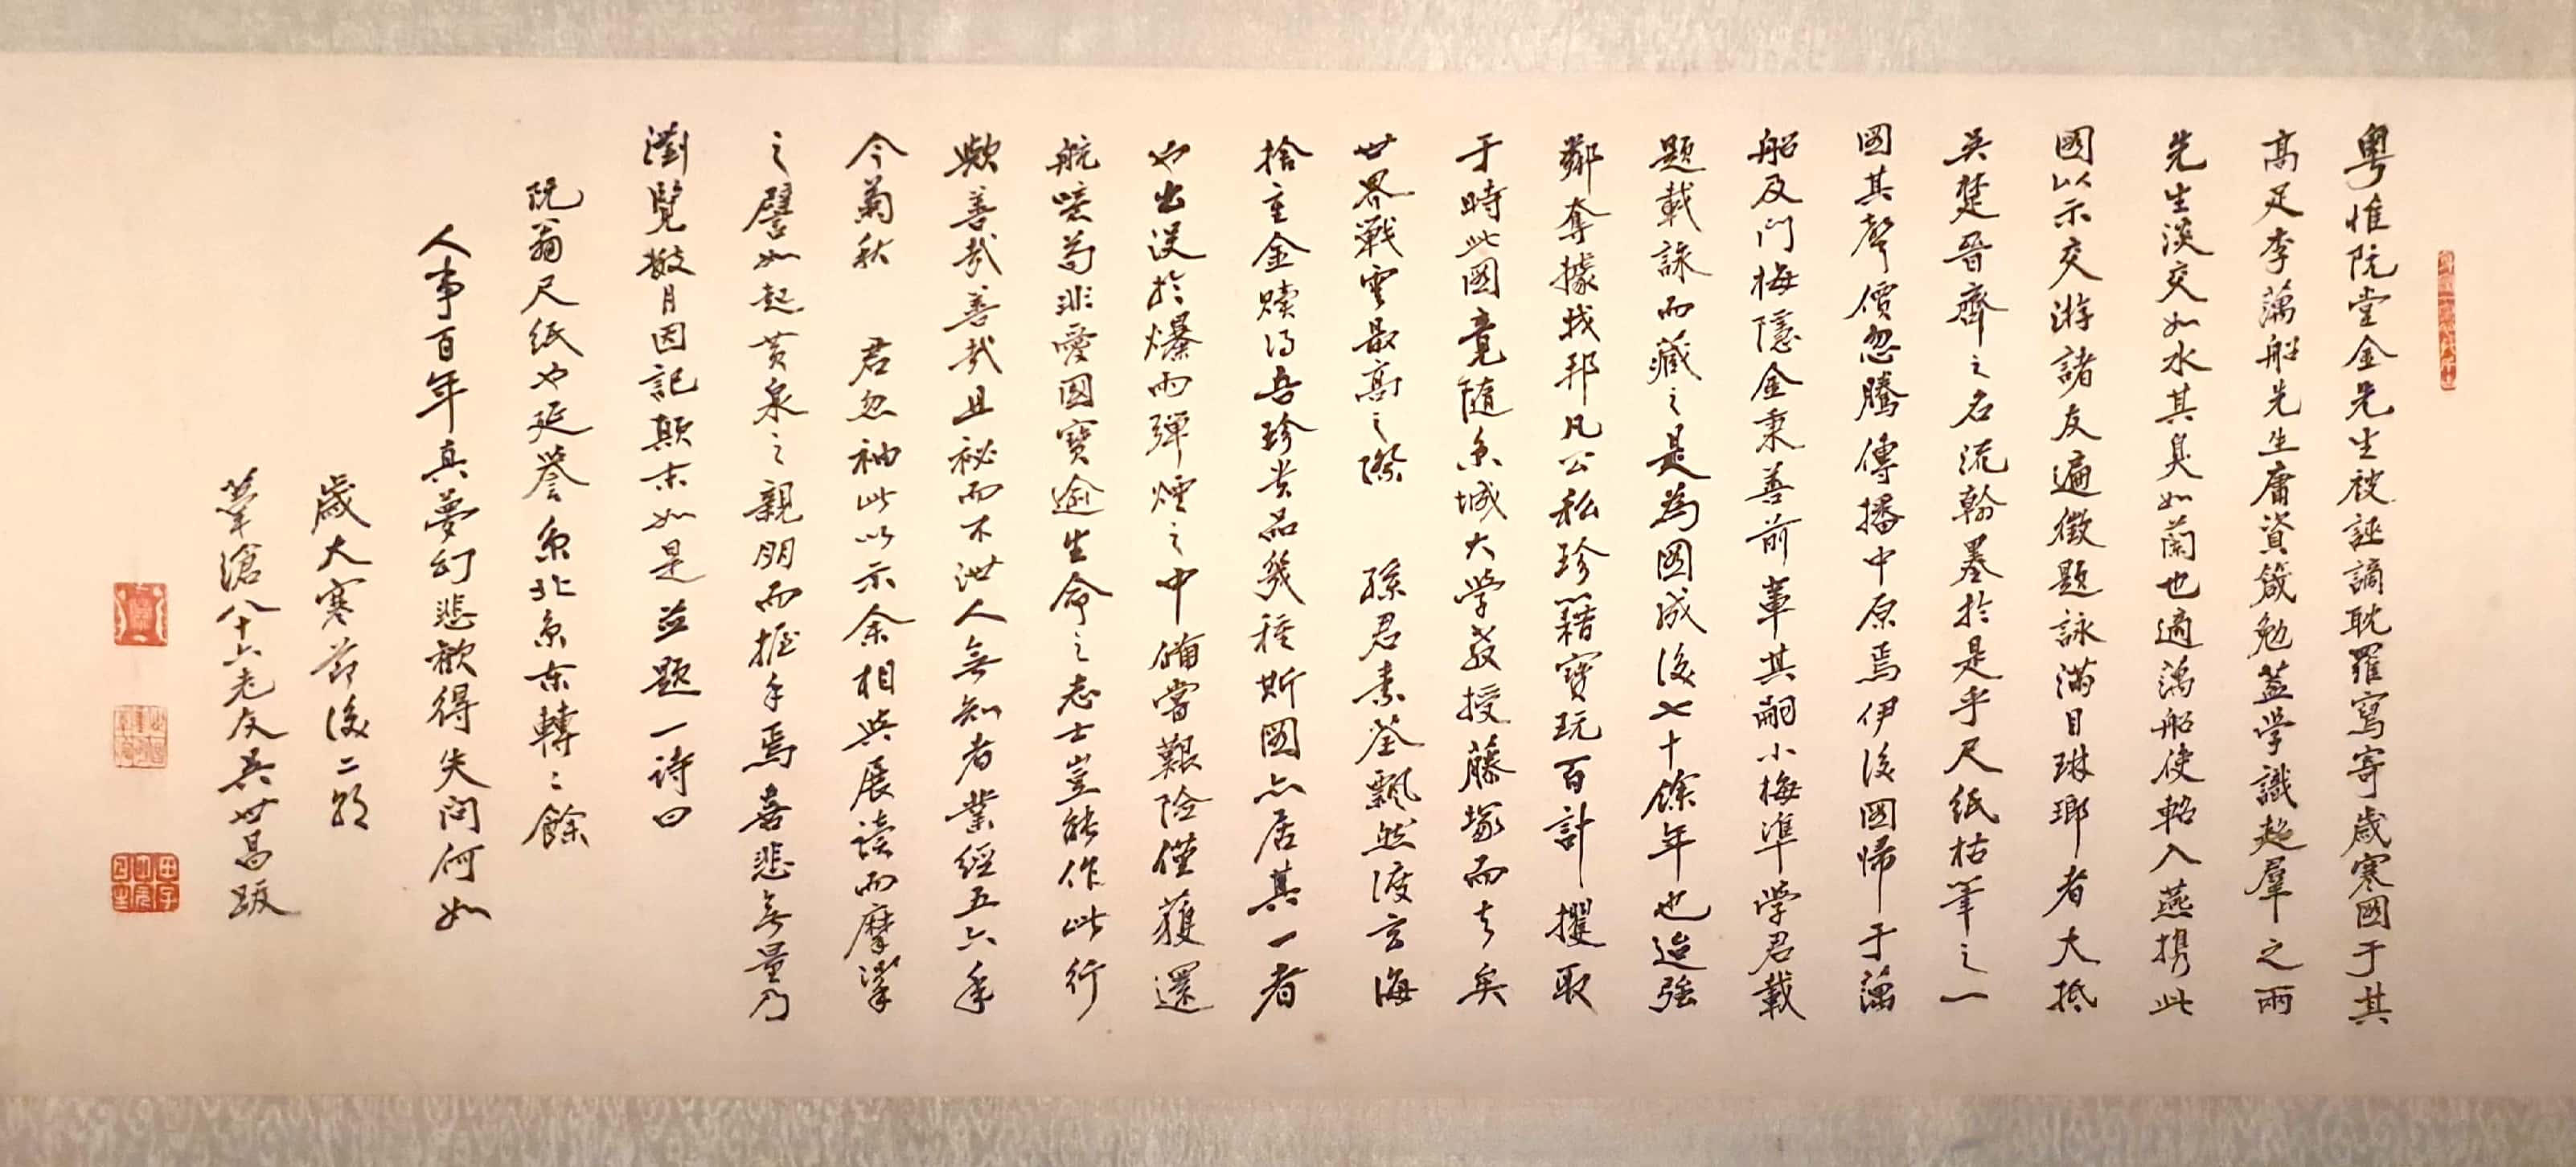 粤惟阮堂金先生被誣謫耽羅寫寄歲寒圖于其
高足李藕船先生庸資箴勉蓋学識超羣之兩
先生淡交如水其臭如蘭也適藕船使軺入燕携此
圖以示交游諸友遍徵題詠滿目琳瑯者大抵
吳楚晉齊之名流翰墨於是乎尺紙枯筆之一
圖其聲價忽騰傳播中原焉伊後圖帰于藕
船及門梅隱金秉善前輩其嗣小梅準学君載
題載詠而藏之是為圖成後七十餘年也迨强
鄰奪據我邦凡公私珍籍寶玩百計攫取
于時此圖竟隨京城大学教授藤塚而去矣
世界戰雲最高之際 孫君素荃飄然渡玄海
捨重金贖得吾珍貴品幾種斯圖亦居其一者
也出沒於爆雨彈煙之中備嘗艱險僅獲還
航噫苟非愛國寶逾生命之志士豈能作此行
歟善哉善哉且祕而不泄人無知者業經五六年
今菊秋 君忽袖此以示余相與展读而摩挲
之譬如起黃泉之親朋而握手焉喜悲無量乃
瀏覽数月因記顛末如是並題一诗曰
阮翁尺紙也延譽京北京東轉〻餘
人事百年真夢幻悲歡得失问何如
歲大寒節後二朔
葦滄八十六老友吳世昌跋